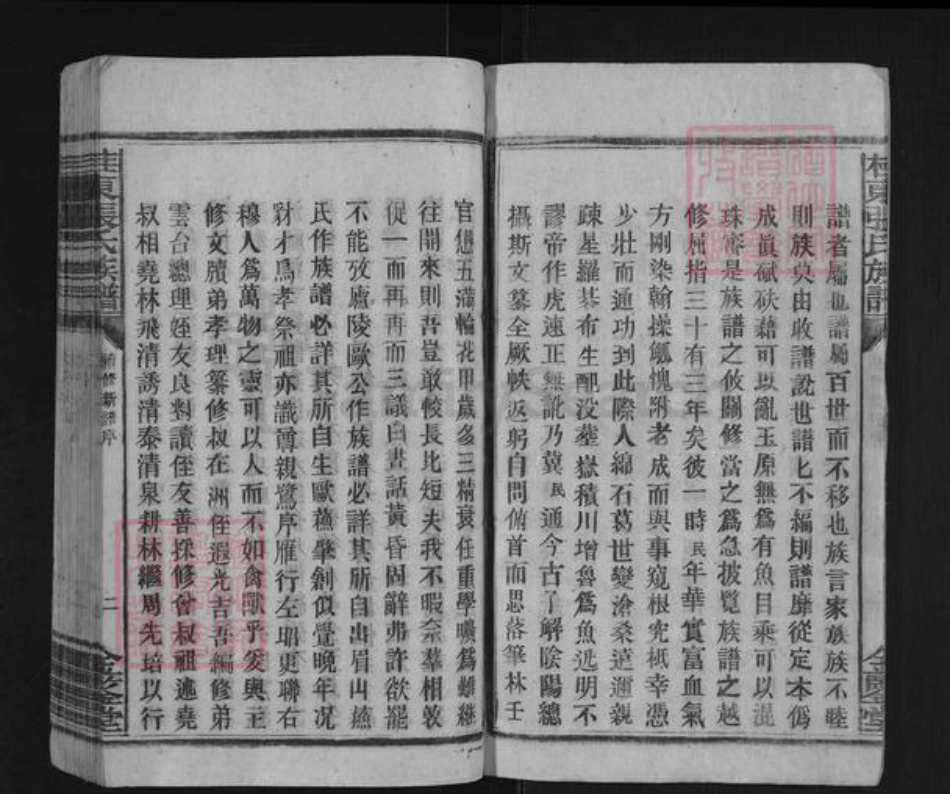 桂東張氏族譜
譜者屬也譜屬百世而不移也族言家族族不睦
則族莫由收譜訛世譜匕不編則譜靡從定本僞
成眞碔砆藉可以亂玉原無爲有魚目乘可以混
珠審是族譜之攸關修當之爲急披覧族譜之越
修屈指三十有三年矣彼一時民年華實富血氣
方剛染翰操觚愧附老成而與事窺根究柢幸憑
少壯而通功到此際人綿石葛世變滄桑遠邇親
疎星羅棊布生配没塟嶽積川增魯爲魚迯明不
謬帝作虎速正無訛乃冀民通今古了解陰陽總
攝斯文纂全厥帙返躬自問俯首而思落筆林壬
官僁五滿輪花甲歲多三精衰任重學曠爲難継
往開來則吾豈敢較長比短夫我不暇奈羣相敦
促一而再再而三議白晝話黃昏固辭弗許欲罷
不能攷廬陵歐公作族譜必詳其所自出眉山蘓
氏作族譜必詳其所自生歐蘓肇創似覺晚年况
豺才馬孝祭祖亦識尊親鷺序雁行左昭更聯右
穆人爲萬物之靈可以人而不如禽獸乎爰與主
修文牘弟孝理纂修叔在洲侄遐光吉吾編修弟
雲台總理姪友良對讀侄友善採修會叔祖述堯
叔相堯林飛清誘清泰清泉耕林繼周先培以行
桂東張氏族譜
續修新譜序
二